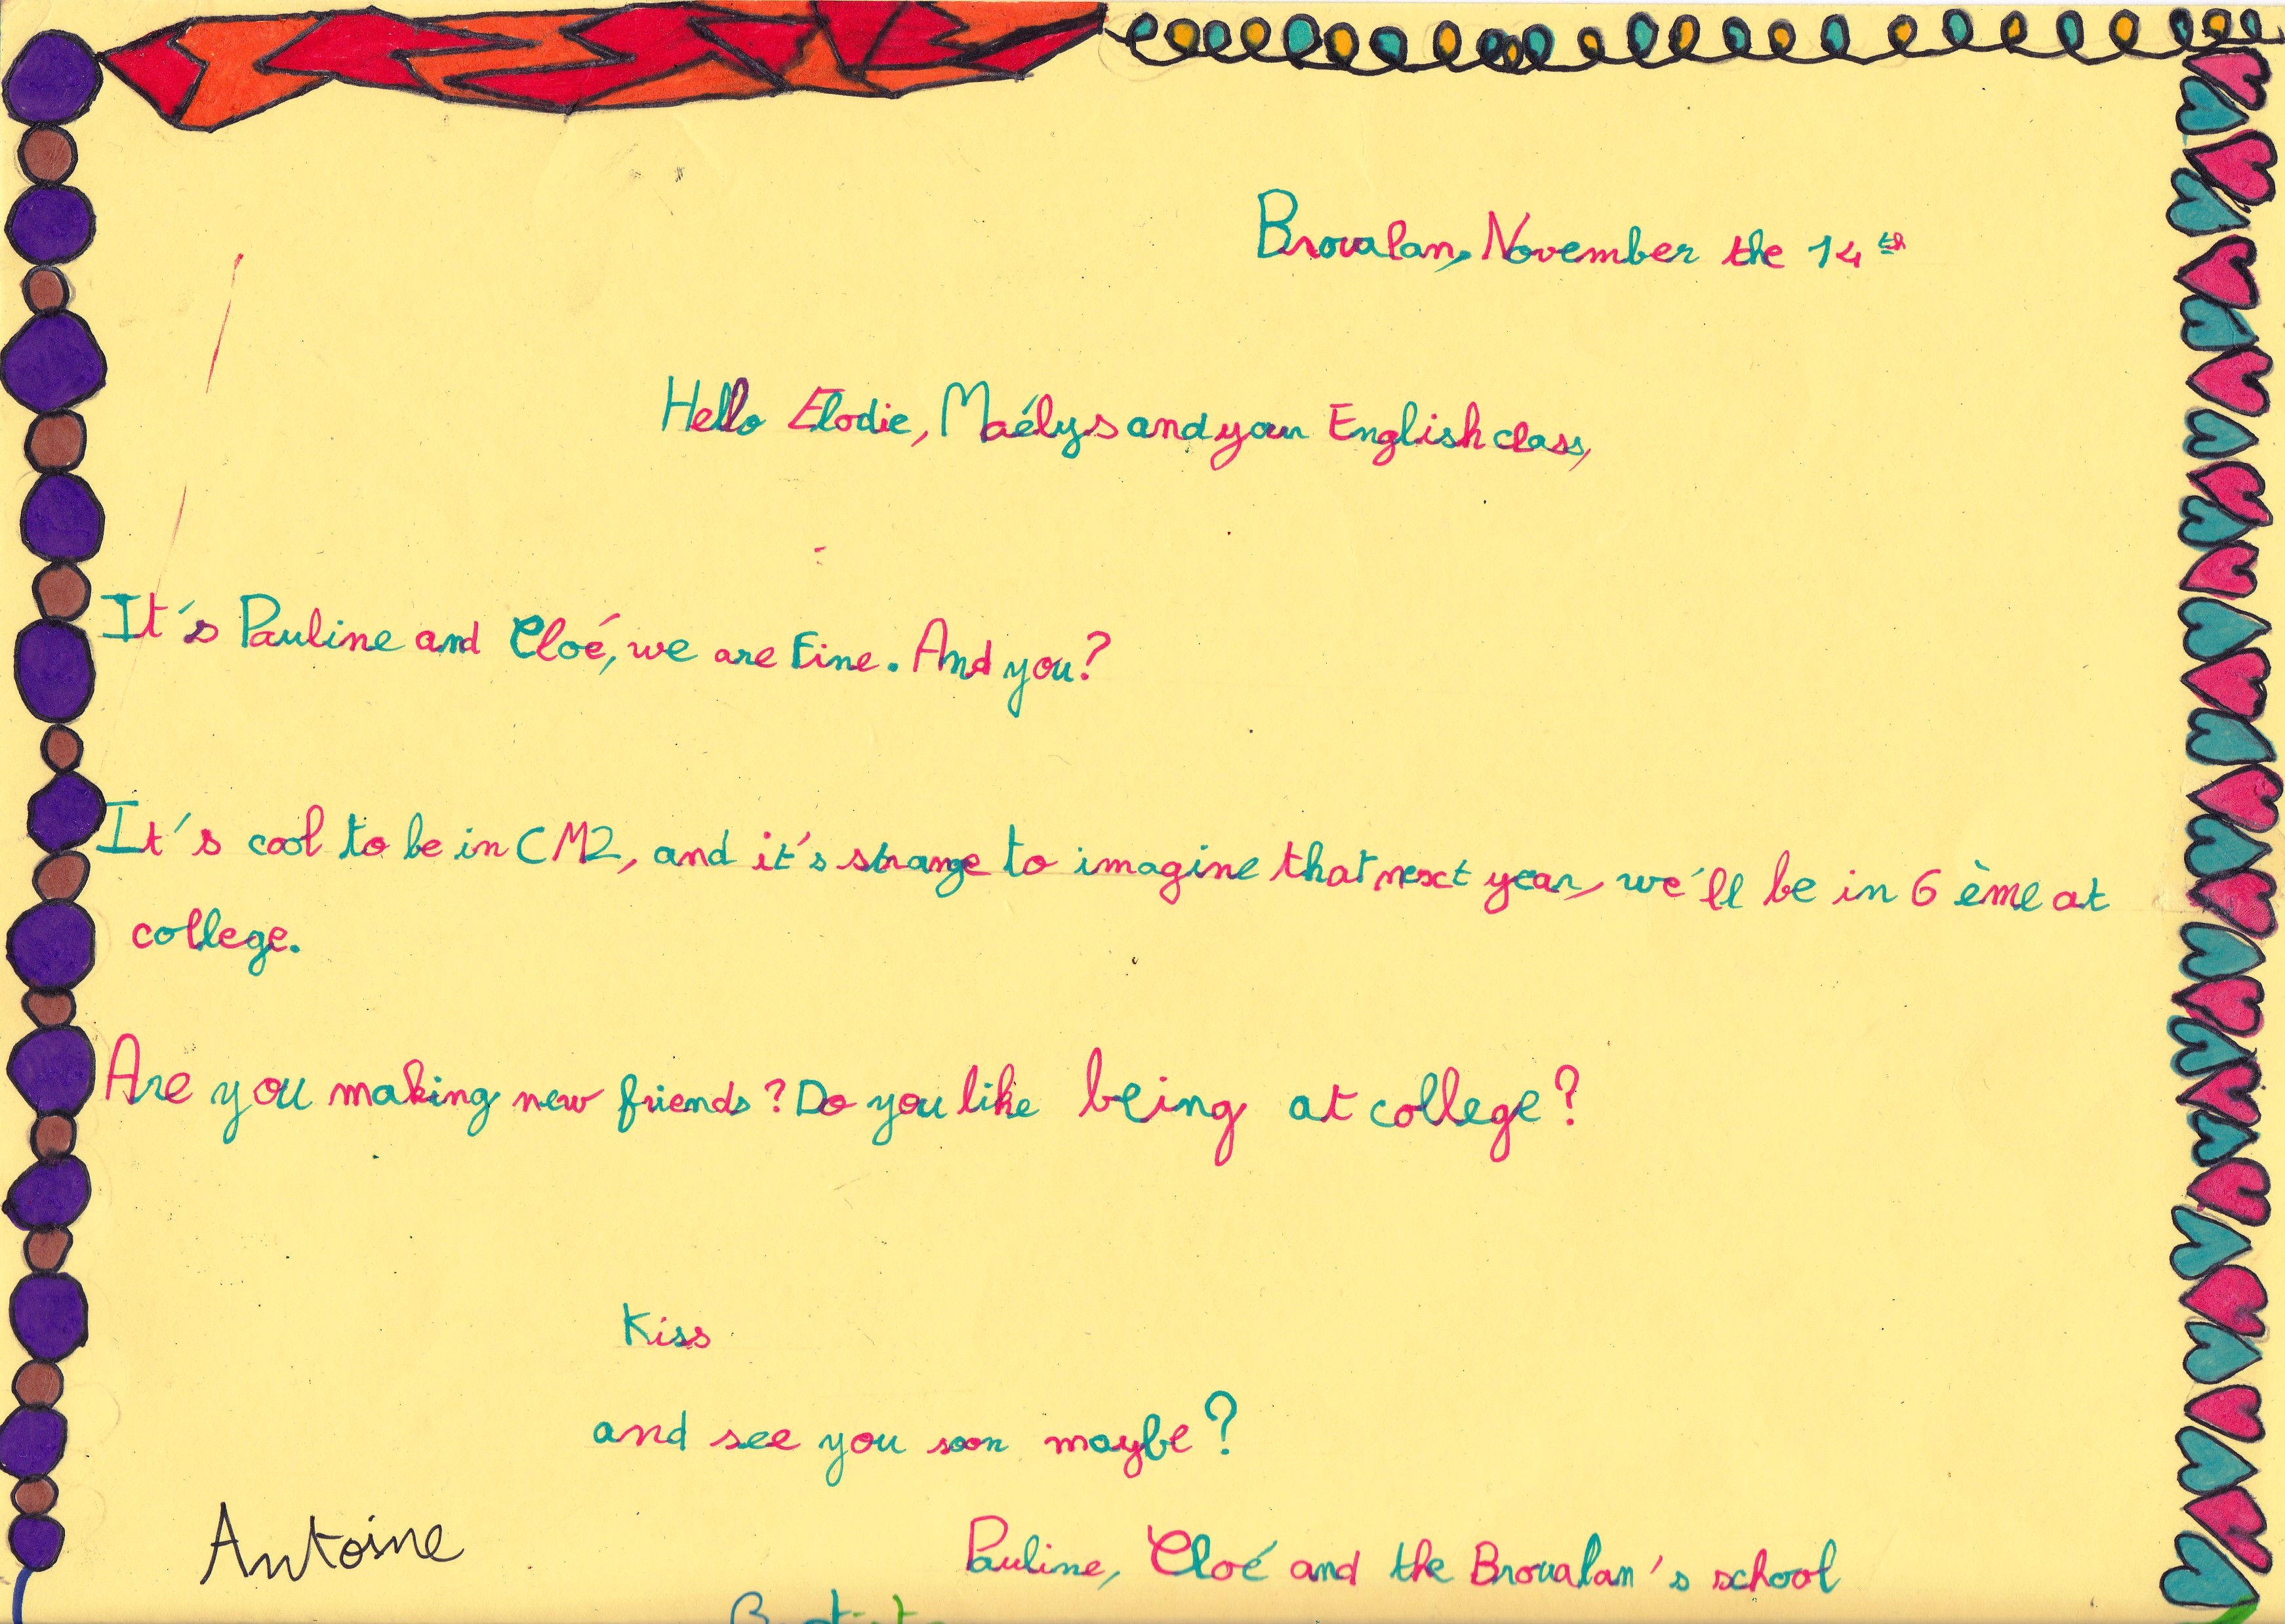 Broualan, November the 14th
Hello Elodie, Maélys and your English class,
It's Pauline and Cloé, we are Fine. And you?
It's cool to be in CM2, and it's strange to imagine that next year, we'll be in 6 ème at
college.
Are you making new friends? Do you like being at college?
Kiss
and see you soon maybe?
Antoine
Pauline, Cloé and the Broualan's school